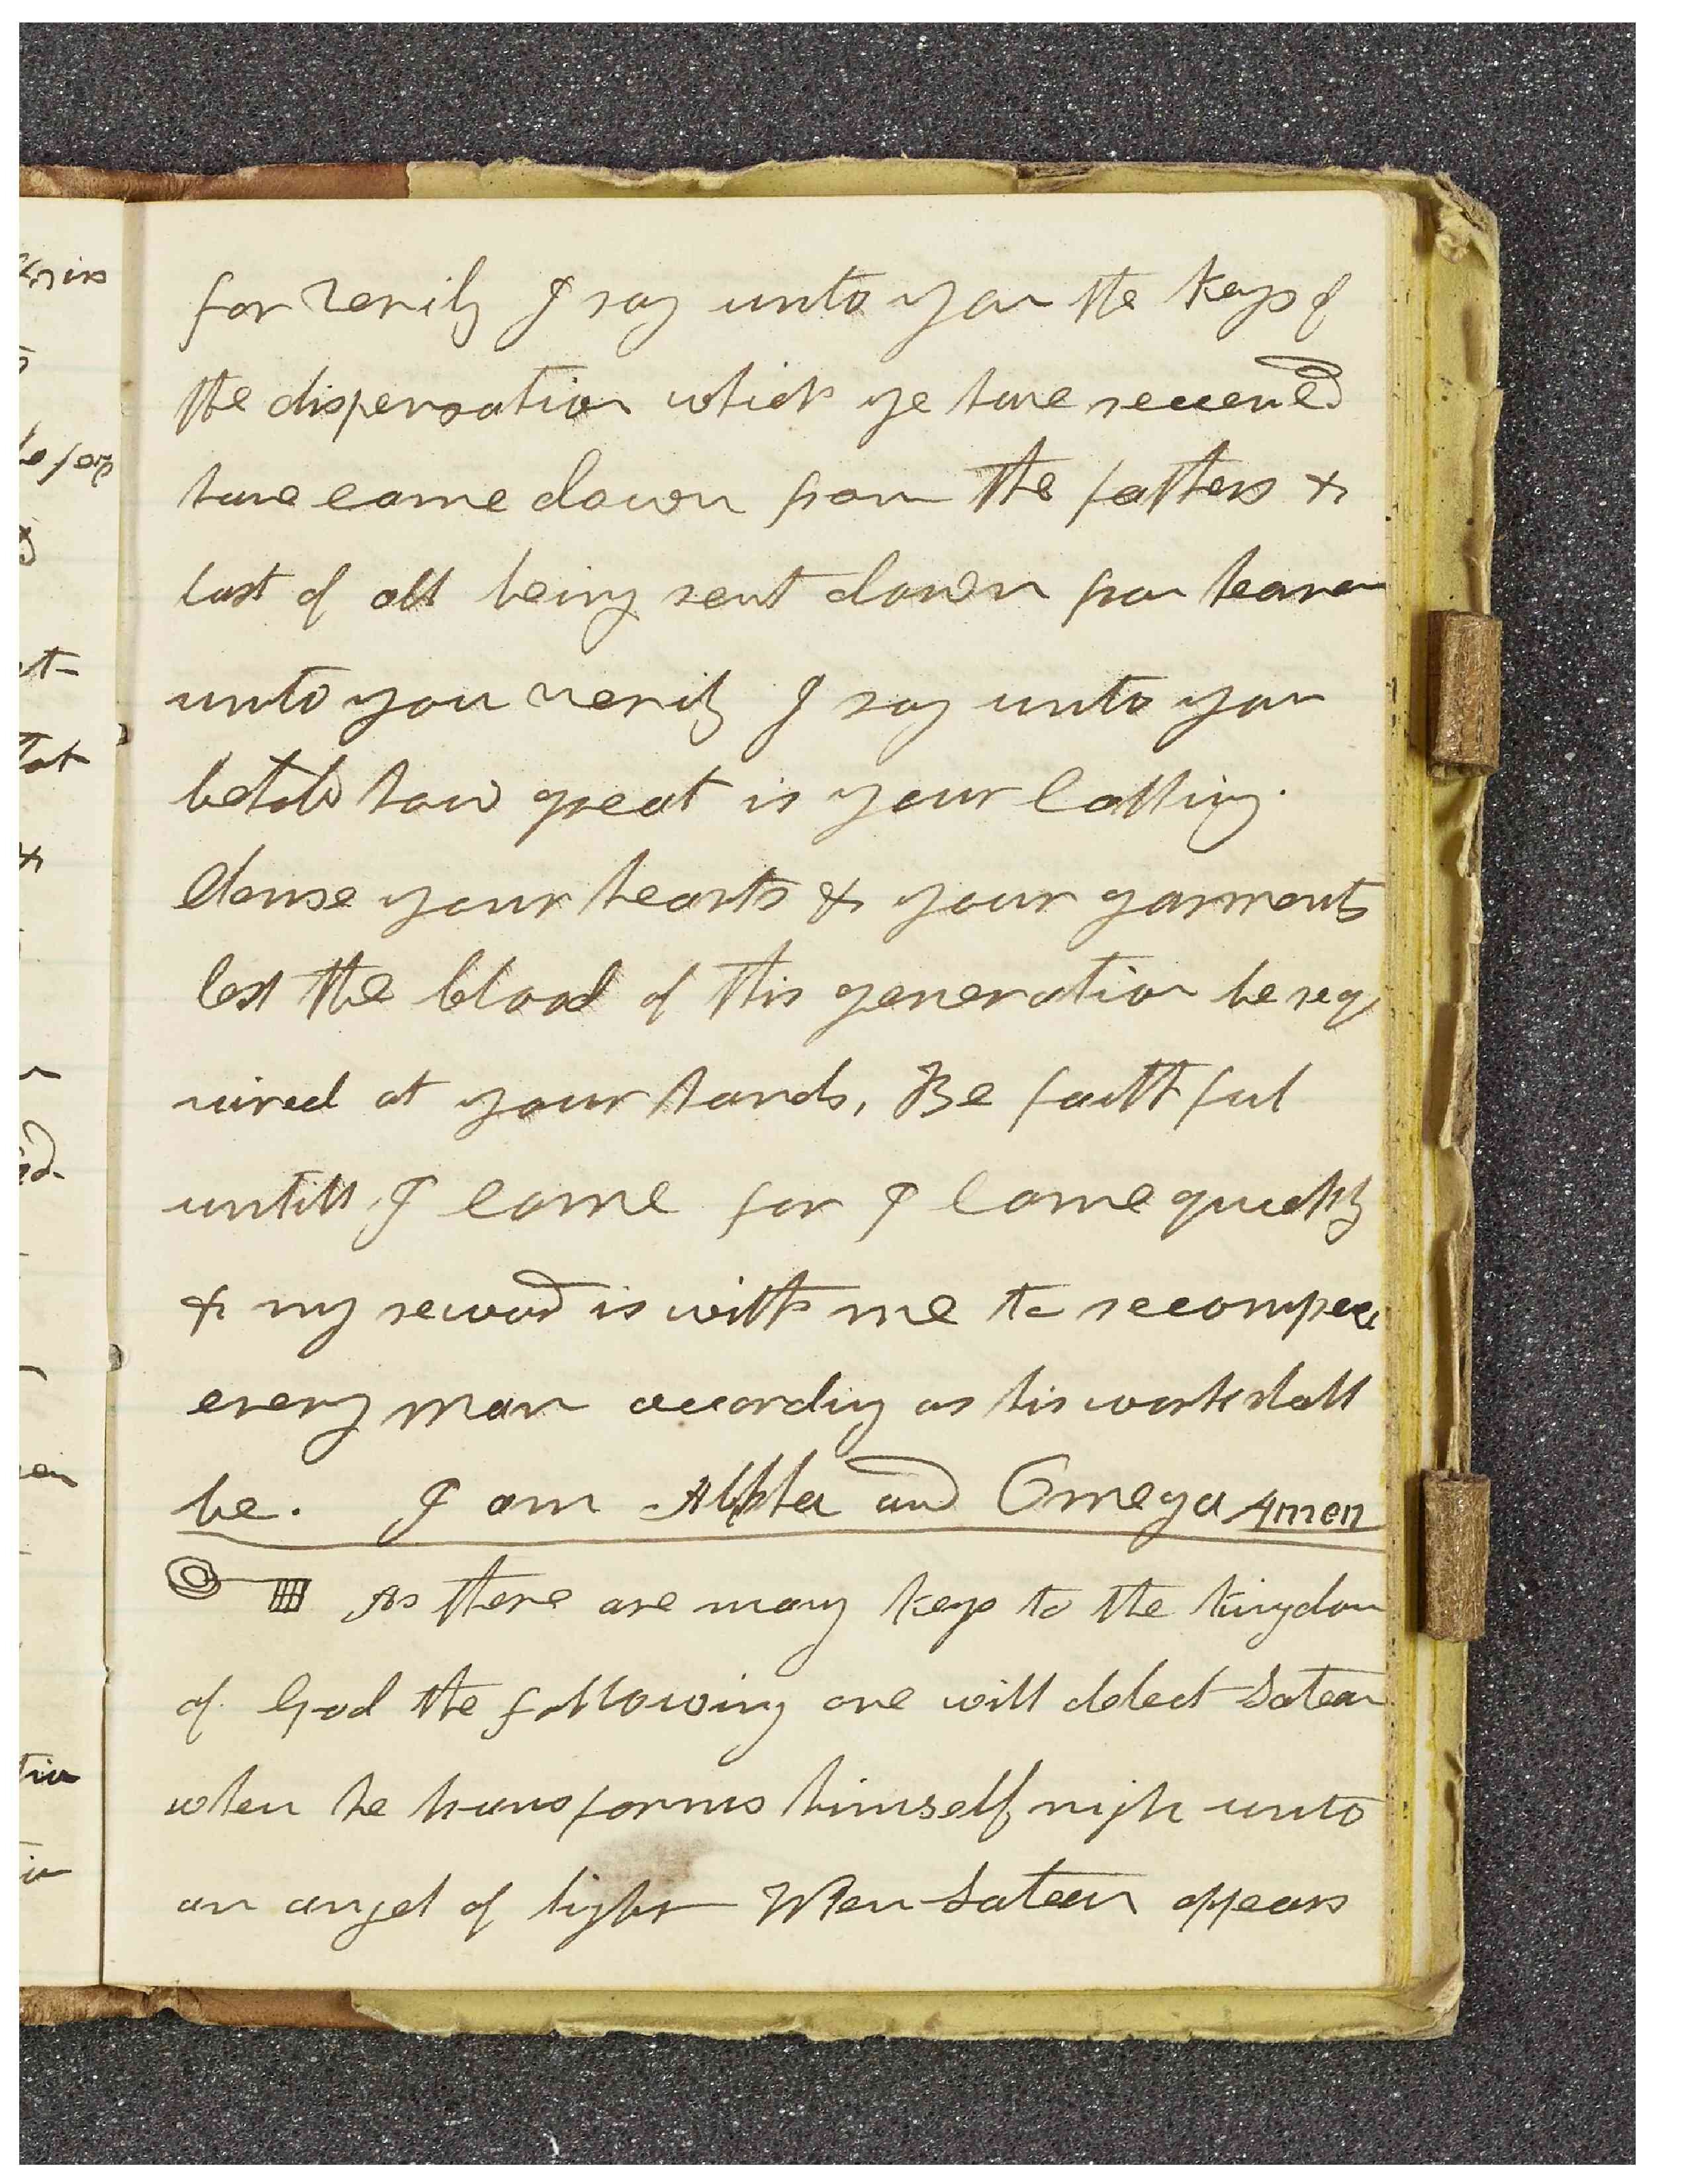 for verily I say unto you the keys of
the dispensation which ye have received
have come down from the fathers &
last of all being sent down from heaven
unto you verily I say unto you
behold how great is your calling.
Clense your hearts & your garments
lest the blood of this generation be req
uired at your hands, Be faithful
untill I come for I come quickly
& my reward is with me to recompece
every man according as his work shall
be. I am Alpha and Omega Amen
As there are many keys to the kingdom
of God the following one will detect Satan
when he transforms himself nigh unto
an angel of light When Satan appears